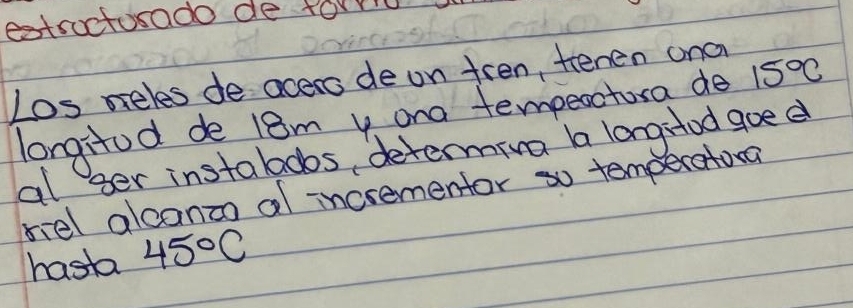 estructurado de
Los rieles de acero de un tren, tienen una
longitud de 18m y una tempeactura de 15°C
al ser instalados, determina la longitud que el
riel alcanza al incrementar su temperatura
hasta 45°C